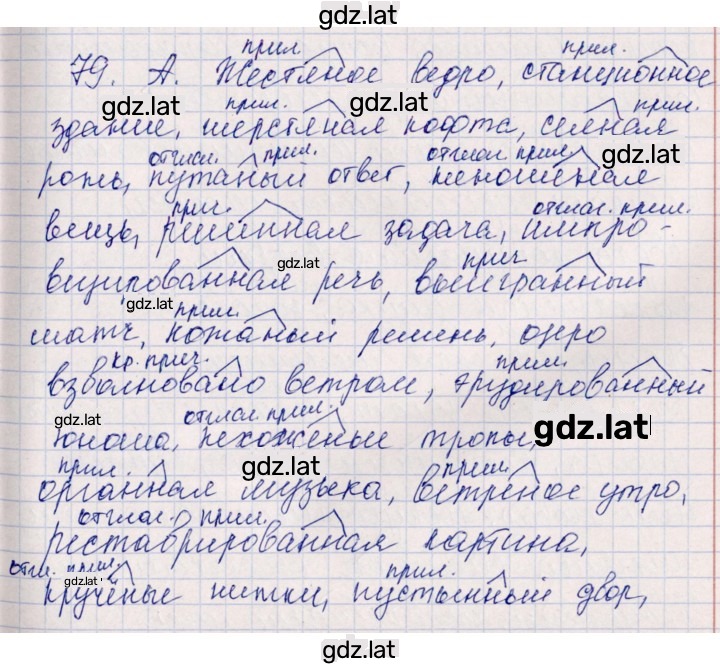 gdz.lat
прил. прил.
79. А. Жестяное ведро, станционное
gdz.lat
прил. прил.
здание, шерстяная кофта, сенная
gdz.lat
отглаг. прил. отглаг. прил.
рожь, путаный ответ, неношеная
прич. отглаг. прил.
вещь, решённая задача, импро-
gdz.lat
прич
визированная речь, выигранный
gdz.lat
прил.
матч, кожаный ремень, озеро
кр. прич. прил.
взволновано ветром, эрудированный
gdz.lat
отглаг. прил.
gdz.lat
юноша, нехоженые тропы,
gdz.lat
прил. прил.
органная музыка, ветреное утро,
отглаг. прил.
реставрированная картина,
отгл. прил. прил.
gdz.lat
кручёные нитки, пустынный двор,
gdz.lat